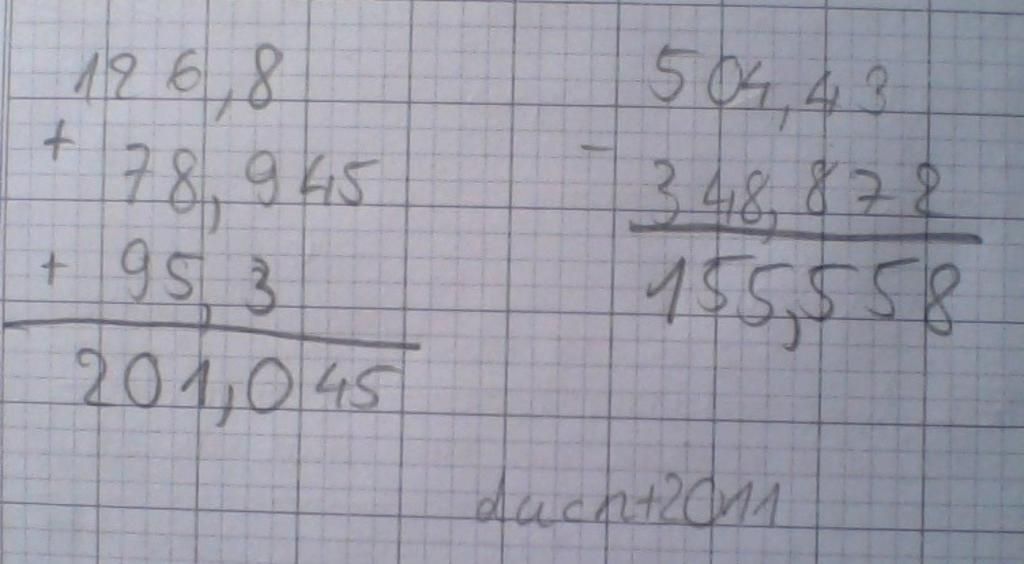 126,8
+ 78,945
+ 95,3
201,045
504,43
- 348,872
155,558